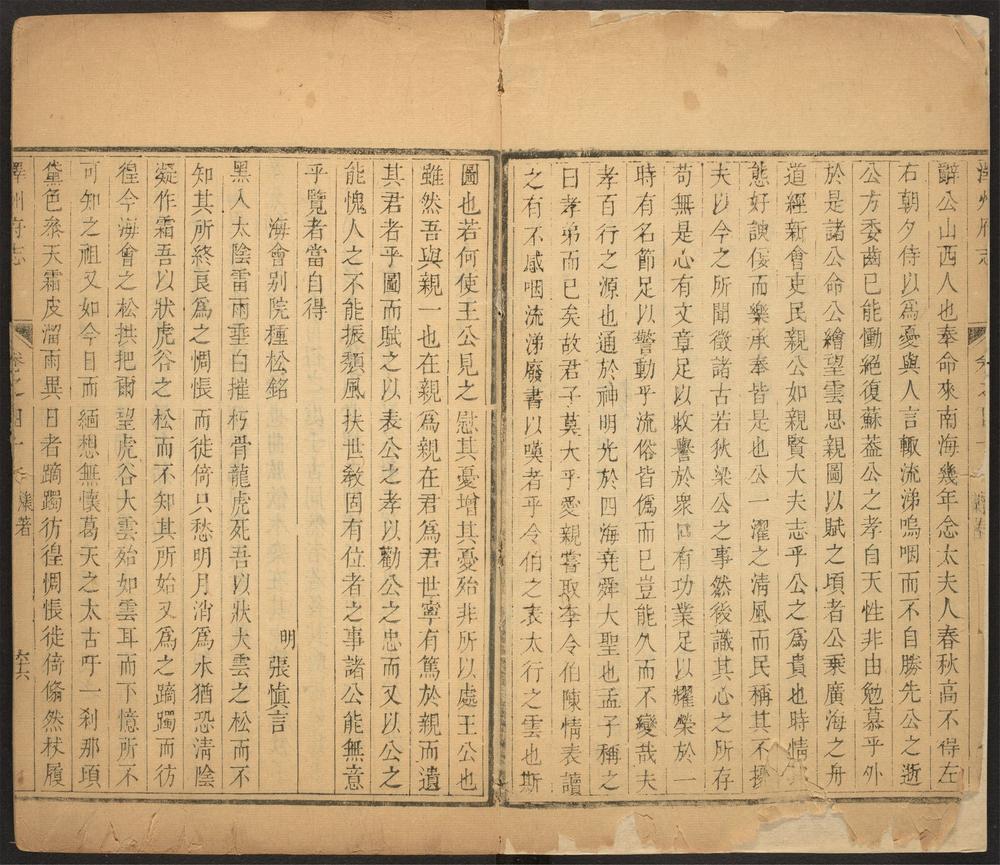 澤州府志
辭公山西人也奉命來南海幾年念太夫人春秋高不得左
右朝夕侍以為憂與人言輙流涕嗚咽而不自勝先公之逝
公方委齒已能慟絕復蘇葢公之孝自天性非由勉慕乎外
於是諸公命公繪望雲思親圖以賦之頃者公乘廣海之舟
道經新會吏民親公如親賢大夫志乎公之為貴也時情
態好諛佞而樂承奉皆是也公一濯之清風而民稱其不擾
夫以今之所聞徵諸古若狄梁公之事然後識其心之所存
苟無是心有文章足以收譽於衆囗有功業足以耀榮於一
時有名節足以警動乎流俗皆僞而已豈能久而不變哉夫
孝百行之源也通於神明光於四海堯舜大聖也孟子稱之
曰孝弟而已矣故君子莫大乎愛親嘗取李令伯陳情表讀
之有不感咽流涕廢書以嘆者乎令伯之表太行之雲也斯
圖也若何使王公見之慰其憂增其憂殆非所以處王公也
雖然吾與親一也在親為親在君為君世寧有篤於親而遺
其君者乎圖而賦之以表公之孝以勸公之忠而又以公之
能愧人之不能振頽風扶世敎固有位者之事諸公能無意
乎覽者當自得
海會别院種松銘
明張慎言
黑入太陰雷雨垂白摧朽骨龍虎死吾以狀大雲之松而不
知其所終哀為之惆悵而徙倚只愁明月消為水猶恐清陰
凝作霜吾以狀虎谷之松而不知其所始又為之蹢躅而彷
徨今海會之松拱把爾望虎谷大雲殆如雲耳而下憶所不
可知之祖又如今日而緬想無懷葛天之太古吁一刹那頃
黛色參天霜皮溜雨異日者蹢躅彷徨惆悵徙倚翛然杖履
澤州府志
卷之四十
著
六六